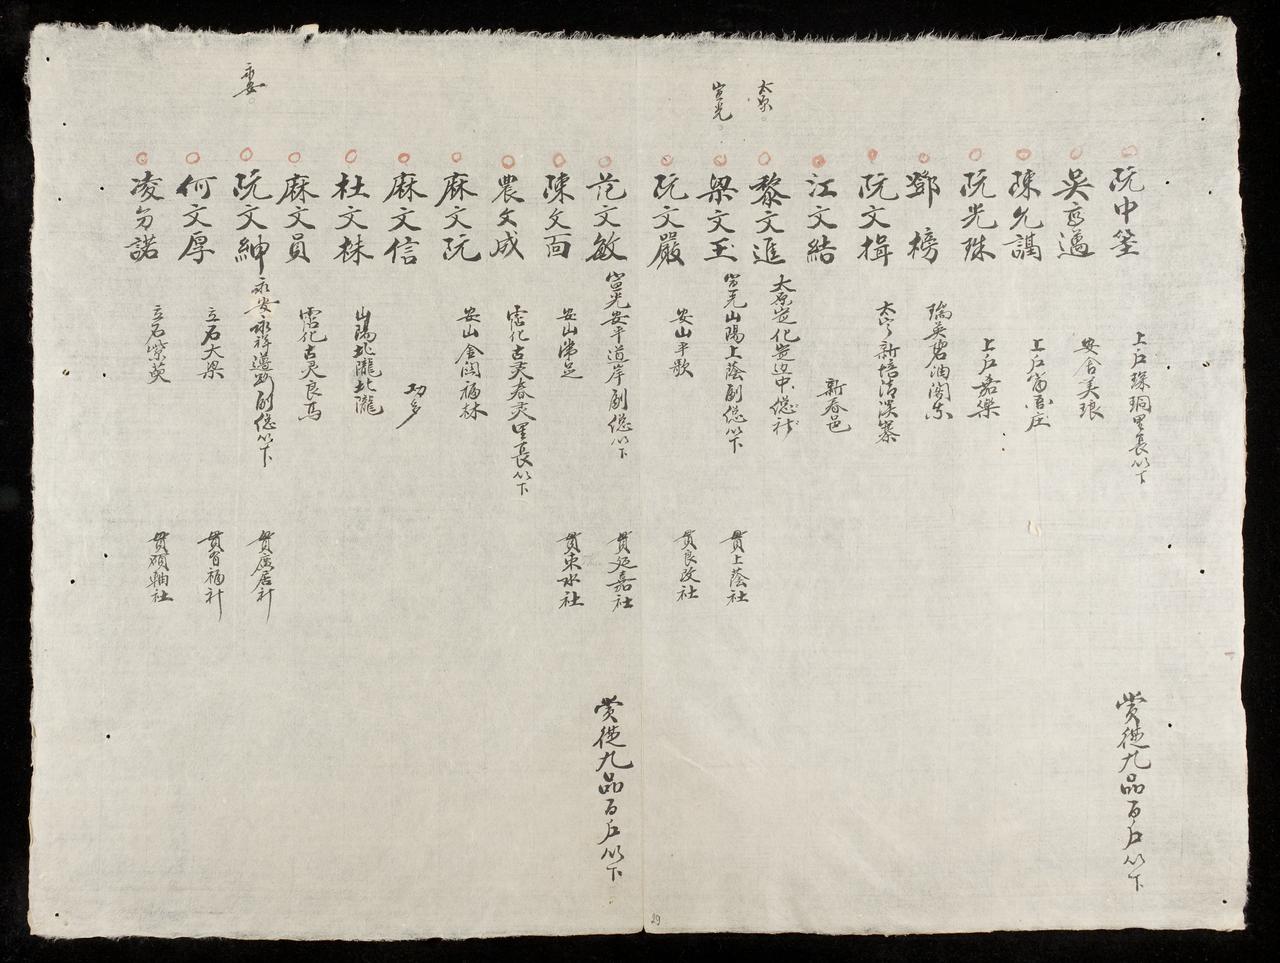 太原
宣光
永安
阮中筌
上戶琛琱里長以下
賞從九品百户以下
吳廷邁
安舍美琅
陳允謁
上戶富舍庄
阮光殊
上戶嘉樂
鄧榜
瑞英碧油
阮文揖
新培清溪寨
江文結
新春邑
黎文進
太原
梁文玉
宣光山陽上蔭副總以下
貫上蔭社
阮文嚴
安山平歌
貫良改社
范文敏
宣光安平道岸副總以下
貫延嘉社
賞從九品百户以下
陳文面
安山常足
貫東水社
農文成
霑化古灵春灵里長以下
麻文阮
安山金閏福林
麻文信
功多
杜文株
山陽北隴北隴
麻文員
霑化古灵良焉
阮文紳
永安永祥遵
副總以下
貫廣居社
何文厚
立石大梁
貫百福社
凌文諾
立石紫英
貫碩軸社
29